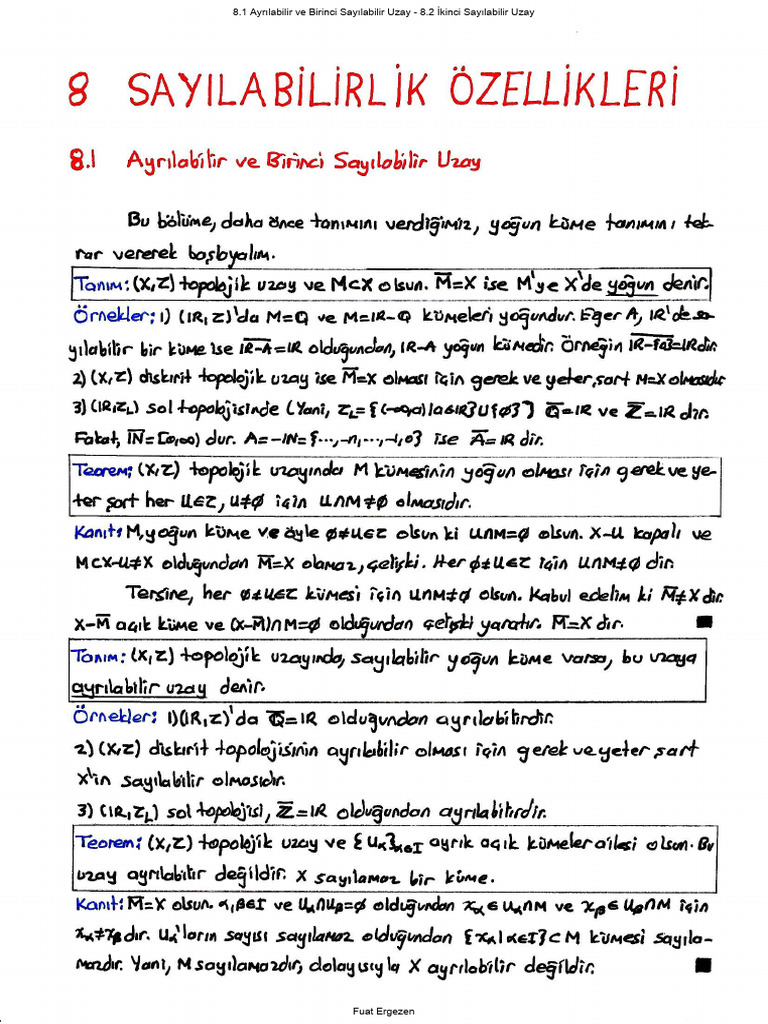 8.1 Ayrılabilir ve Birinci Sayılabilir Uzay - 8.2 İkinci Sayılabilir Uzay
8 SAYILABİLİRLİK ÖZELLİKLERİ
8.1 Ayrılabilir ve Birinci Sayılabilir Uzay
Bu bölüme, daha önce tanımını verdiğimiz, yoğun küme tanımını tek-
rar vererek başlıyalım.
Tanım: (X,τ) topolojik uzay ve M⊂X olsun. M̅=X ise M'ye X'de yoğun denir.
Örnekler: 1) (IR,τ)'da M=Q ve M=IR-Q kümeleri yoğundur. Eğer A, IR'de sa-
yılabilir bir küme ise \overline{IR-A}=IR olduğundan, IR-A yoğun kümedir. Örneğin \overline{IR-{a}}=IR dir.
2) (X,τ) diskirit topolojik uzay ise M̅=X olması için gerek ve yeter şart M=X olmasıdır
3) (IR,τ_L) sol topolojisinde (Yani, τ_L={(-∞,a)|a∈IR}∪{∅}) Q̅=IR ve Z̅=IR dir.
Fakat, \overline{IN}=[0,∞) dur. A=-IN={...,-n,...,-1,0} ise A̅=IR dir.
Teorem: (X,τ) topolojik uzayında M kümesinin yoğun olması için gerek ve ye-
ter şart her U∈τ, U≠∅ için U∩M≠∅ olmasıdır.
Kanıt: M, yoğun küme ve öyle ∅≠U∈τ olsun ki U∩M=∅ olsun. X-U kapalı ve
M⊂X-U≠X olduğundan M̅=X olamaz, çelişki. Her ∅≠U∈τ için U∩M≠∅ dir.
Tersine, her ∅≠U∈τ kümesi için U∩M≠∅ olsun. Kabul edelim ki M̅≠X dir.
X-M̅ açık küme ve (X-M̅)∩M=∅ olduğundan çelişki yaratır. M̅=X dir. ■
Tanım: (X,τ) topolojik uzayında, sayılabilir yoğun küme varsa, bu uzaya
ayrılabilir uzay denir.
Örnekler: 1) (IR,τ)'da Q̅=IR olduğundan ayrılabilirdir.
2) (X,τ) diskirit topolojisinin ayrılabilir olması için gerek ve yeter şart
X'in sayılabilir olmasıdır.
3) (IR,τ_L) sol topolojisi, Z̅=IR olduğundan ayrılabilirdir.
Teorem: (X,τ) topolojik uzay ve {U_α}_{α∈I} ayrık açık kümeler ailesi olsun. Bu
uzay ayrılabilir değildir. X sayılamaz bir küme.
Kanıt: M̅=X olsun. α,β∈I ve U_α∩U_β=∅ olduğundan x_α∈U_α∩M ve x_β∈U_β∩M için
x_α≠x_β dır. U_α'ların sayısı sayılamaz olduğundan {x_α|α∈I}⊂M kümesi sayıla-
mazdır. Yani, M sayılamazdır, dolayısıyla X ayrılabilir değildir. ■
Fuat Ergezen